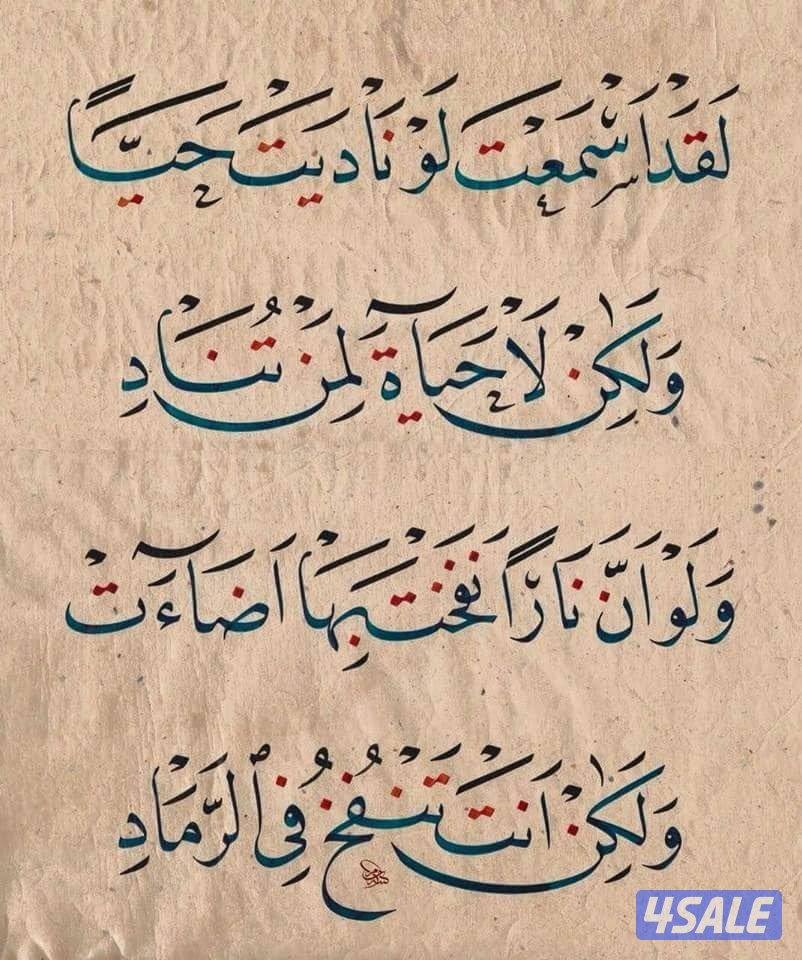 لَقَدْ اَسْمَعْتَ لَوْ نَادَيْتَ حَيًّا
وَلٰكِنْ لَا حَيَاةَ لِمَنْ تُنَادِ
وَلَوْ اَنَّ نَارًا نَفَخْتَ بِهَا اَضَآءَتْ
وَلٰكِنْ اَنْتَ تَنْفُخُ فِي الرَّمَادِ
4SALE